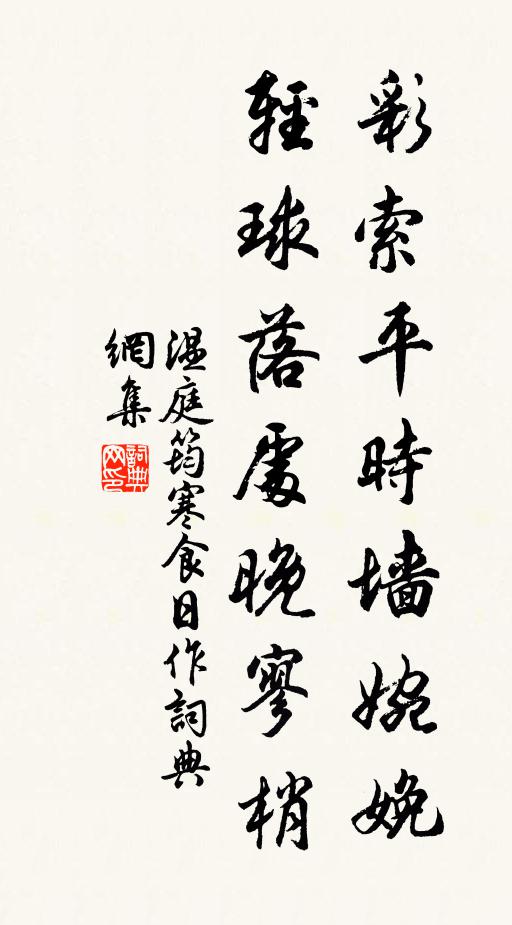 彩索平時墙婉娩
輕球落處晚寥梢
温庭筠寒食日作詞典
網集
詞典网印